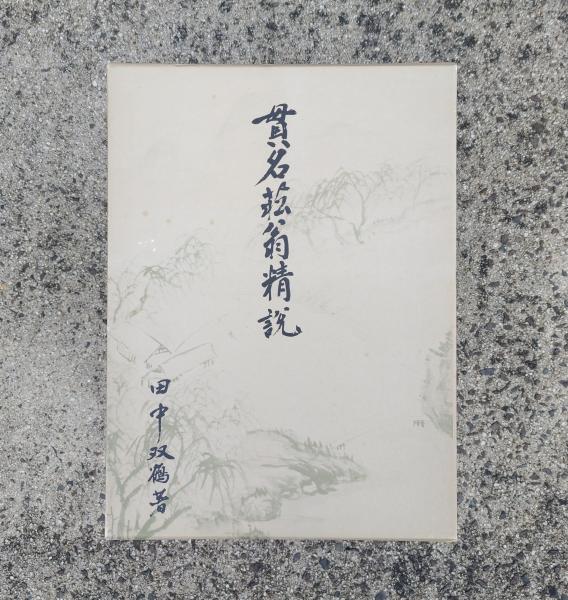 貫名菘翁精説
田中双鶴著